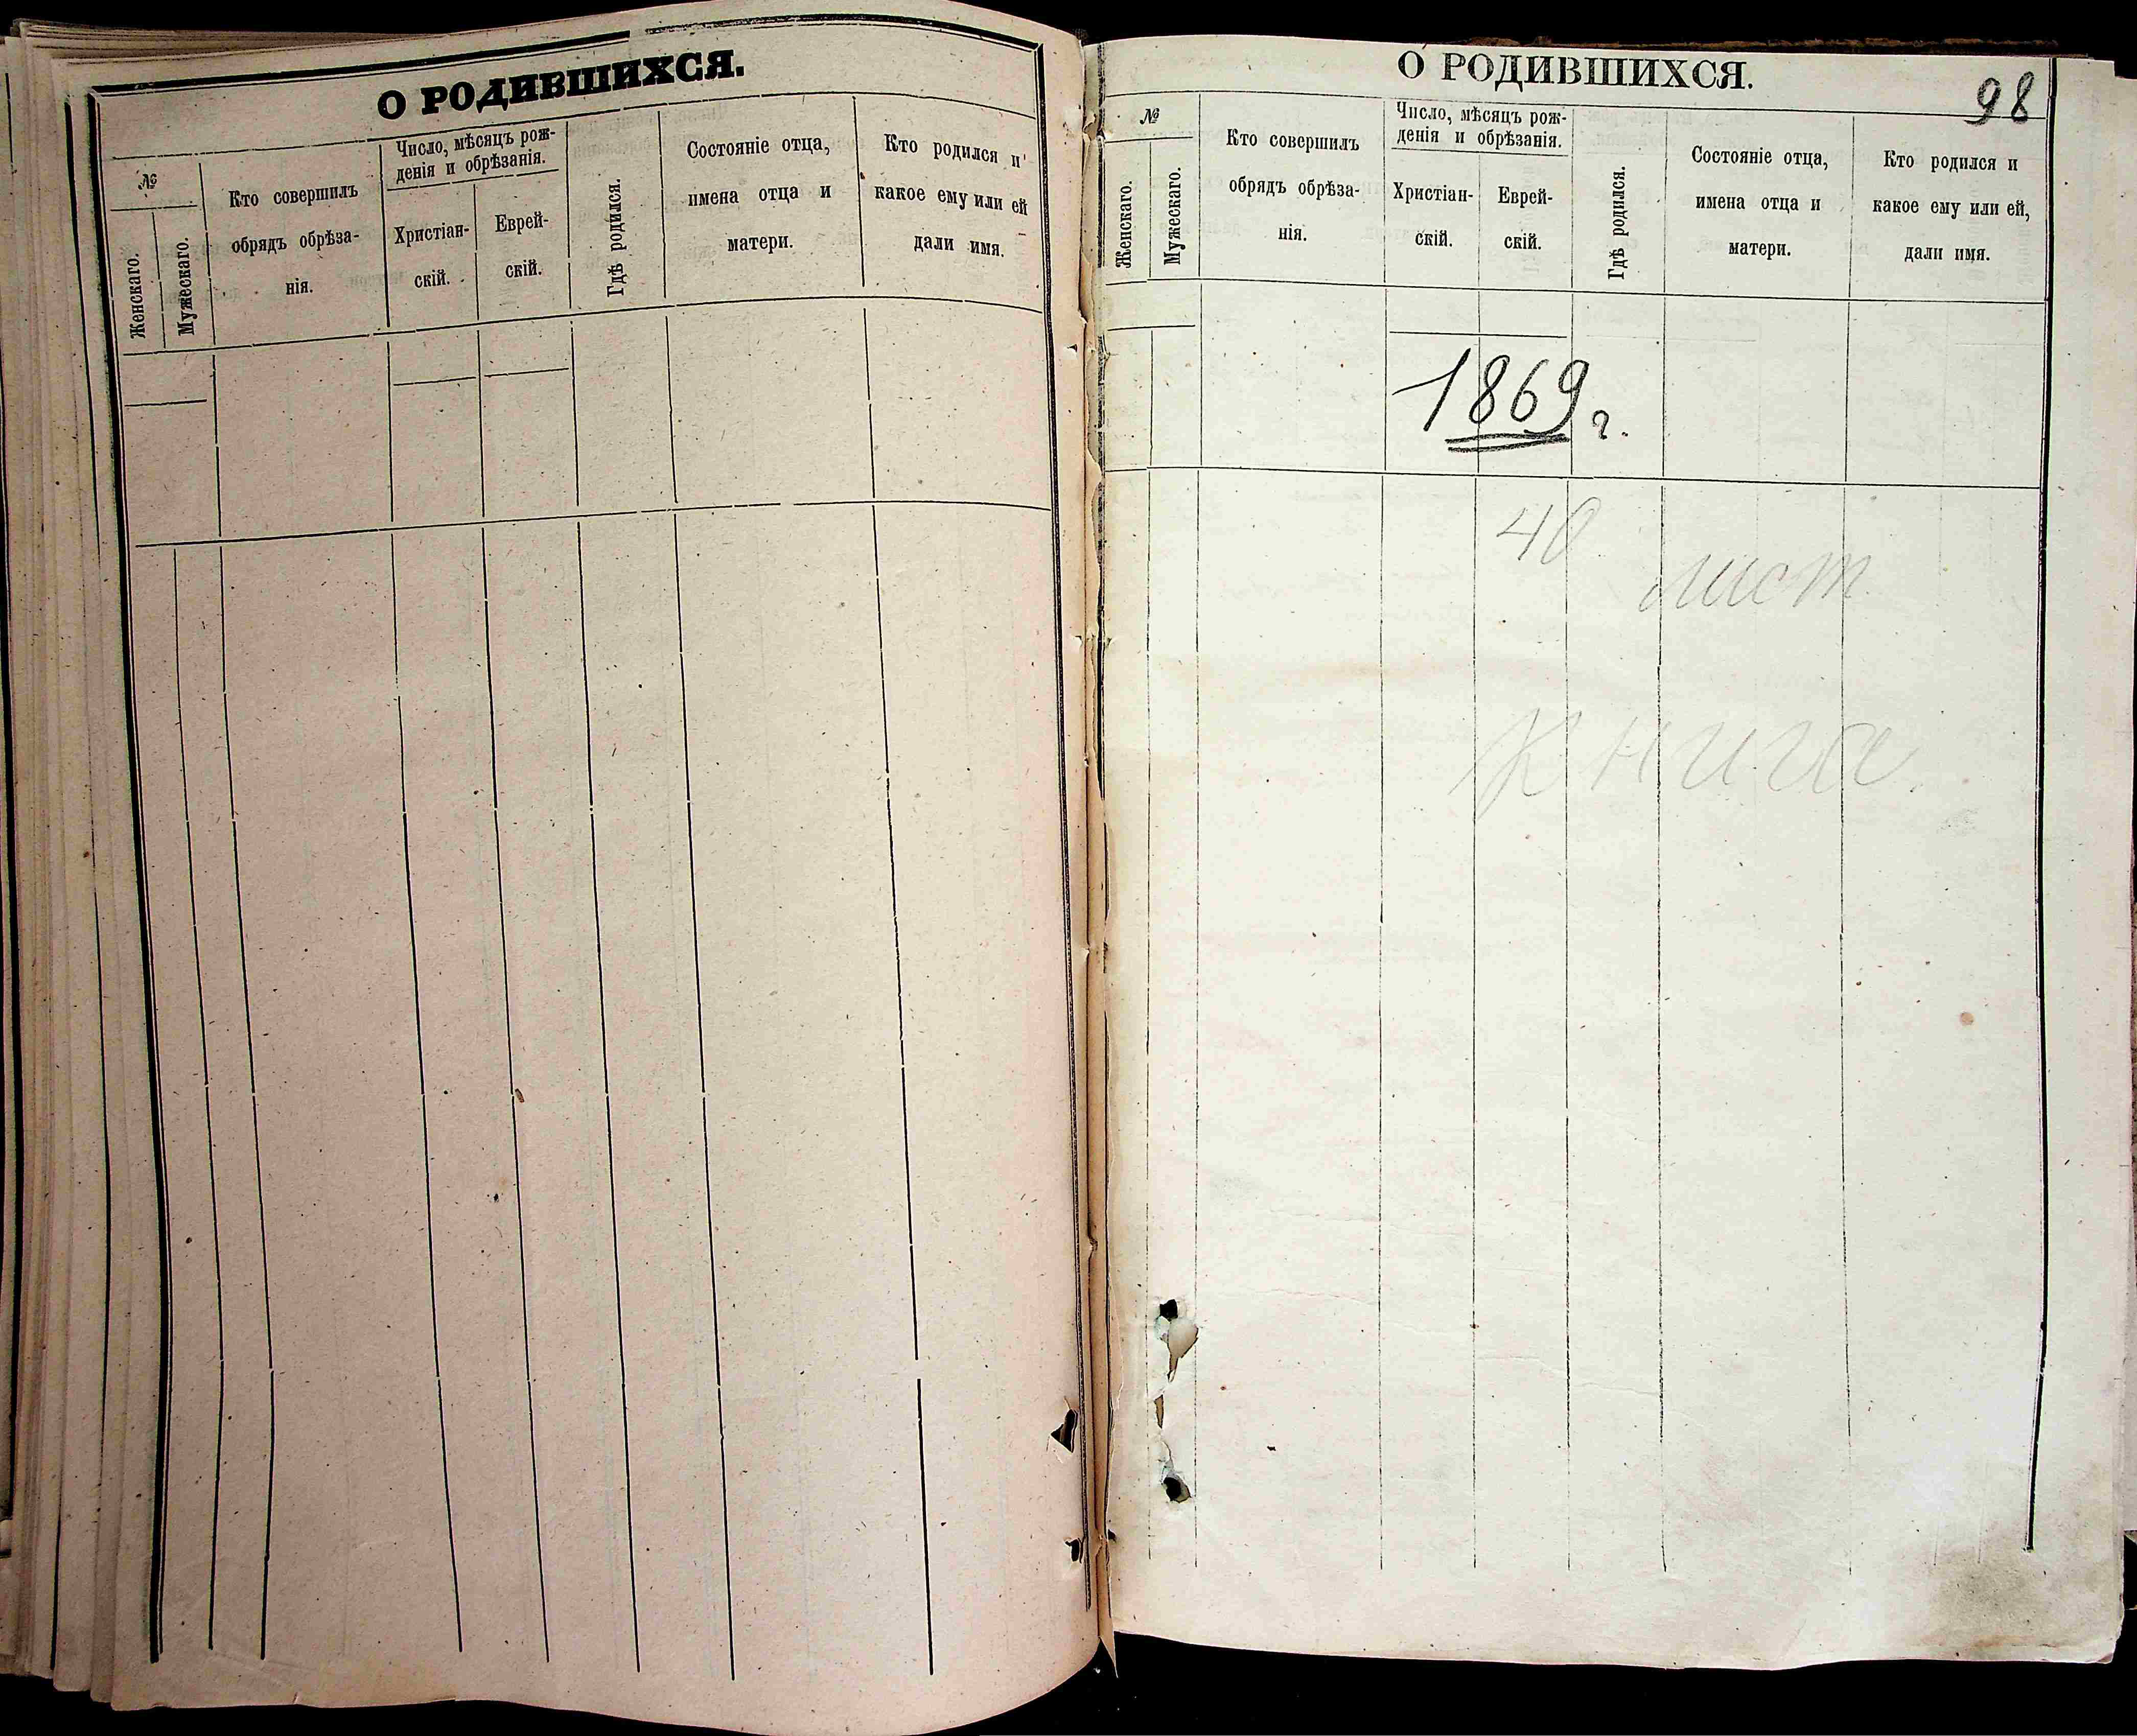 О РОДИВШИХСЯ.
№
Женскаго.
Мужескаго.
Кто совершилъ
обрядъ обрѣза-
нія.
Число, мѣсяцъ рож-
денія и обрѣзанія.
Христіан-
скій.
Еврей-
скій.
Гдѣ родился.
Состояніе отца,
имена отца и
матери.
Кто родился и
какое ему или ей
дали имя.
О РОДИВШИХСЯ.
98
№
Женскаго.
Мужескаго.
Кто совершилъ
обрядъ обрѣза-
нія.
Число, мѣсяцъ рож-
денія и обрѣзанія.
Христіан-
скій.
Еврей-
скій.
Гдѣ родился.
Состояніе отца,
имена отца и
матери.
Кто родился и
какое ему или ей,
дали имя.
1869 г.
40 лист
книга.